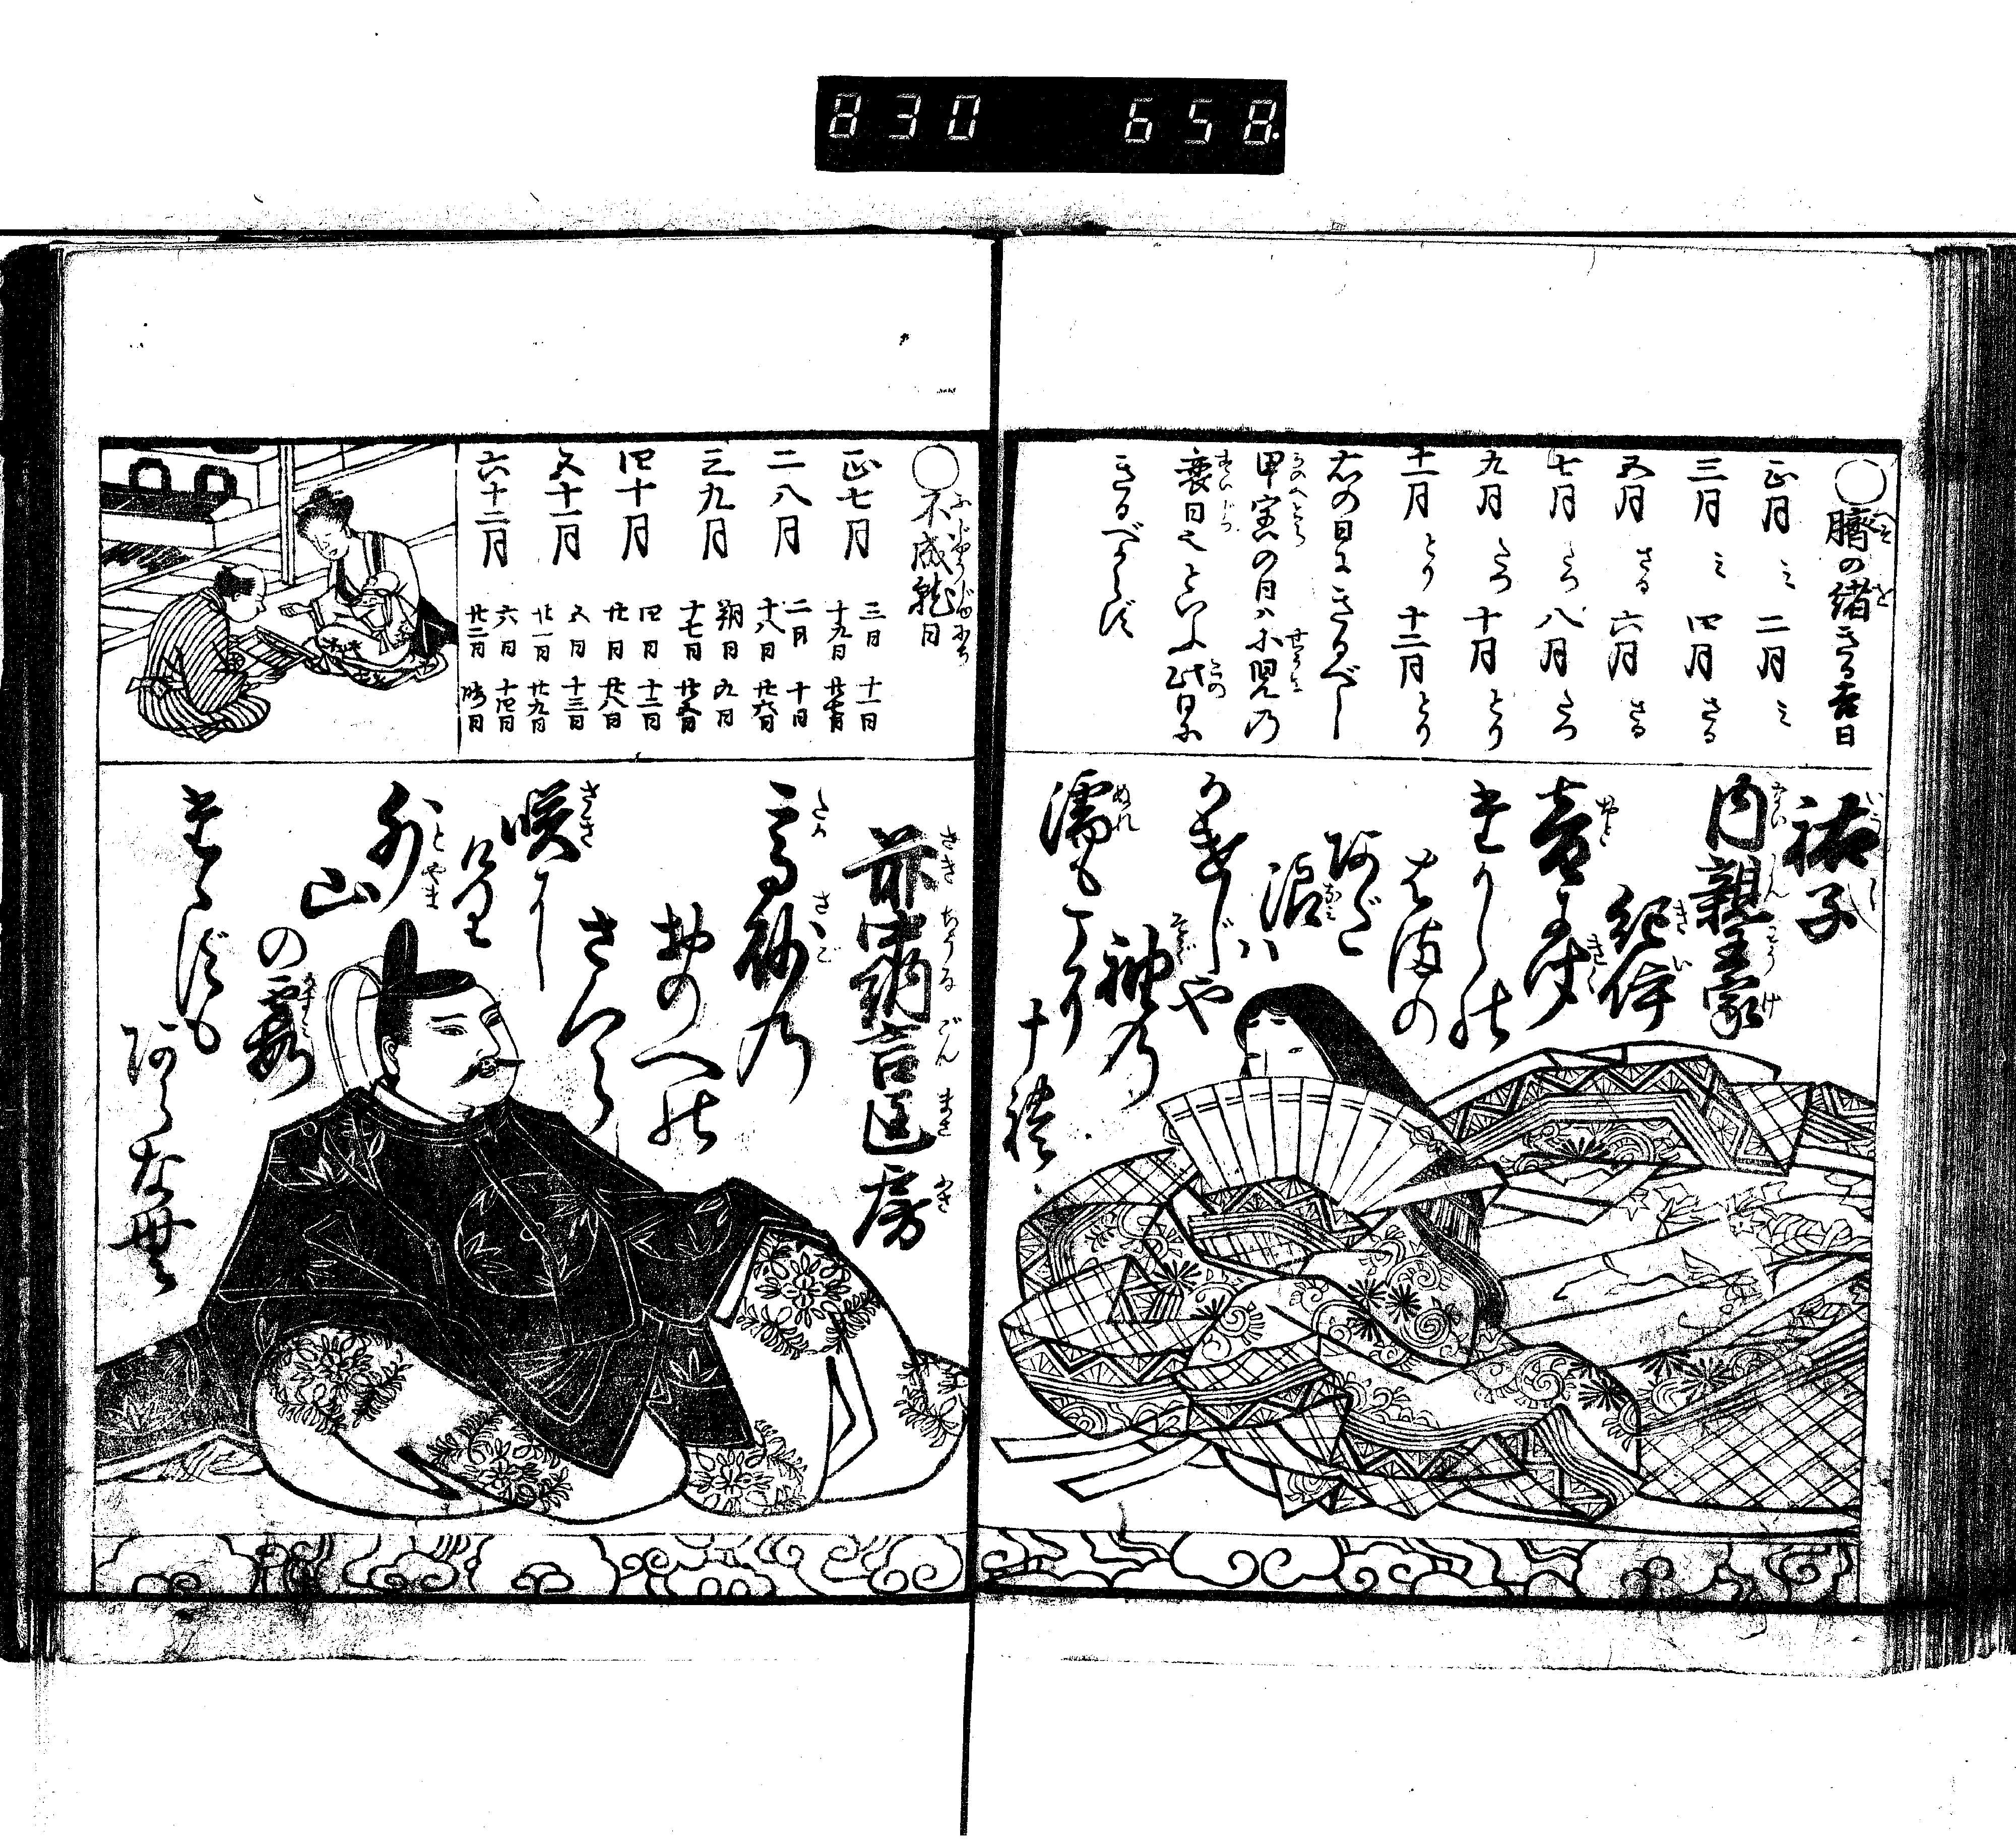 830 658
○臍の緒きる吉日
正月 ミ 二月 ミ
三月 ミ 四月 さる
五月 さる 六月 さる
七月 たつ 八月 たつ
九月 たつ 十月 とり
十一月 とり 十二月 とり
右の日にきるべし
甲寅の日ハ小児の
衰日也といふ此日に
きるべからず
祐子
内親王家
紀伊
音にきく
たかしの
はまの
あだ
浪ハ
かけじや
袖の
濡もこそ
すれ
○不成就日
正七月 三日 十一日 十九日 廿七日
二八月 二日 十日 十八日 廿六日
三九月 朔日 九日 十七日 廿五日
四十月 四日 十二日 廿日 廿八日
五十一月 五日 十三日 廿一日 廿九日
六十二月 六日 十四日 廿二日 晦日
前中納言匡房
高砂の
おのへの
さくら
咲にけり
外山
の霞
たゝずも
あらなむ